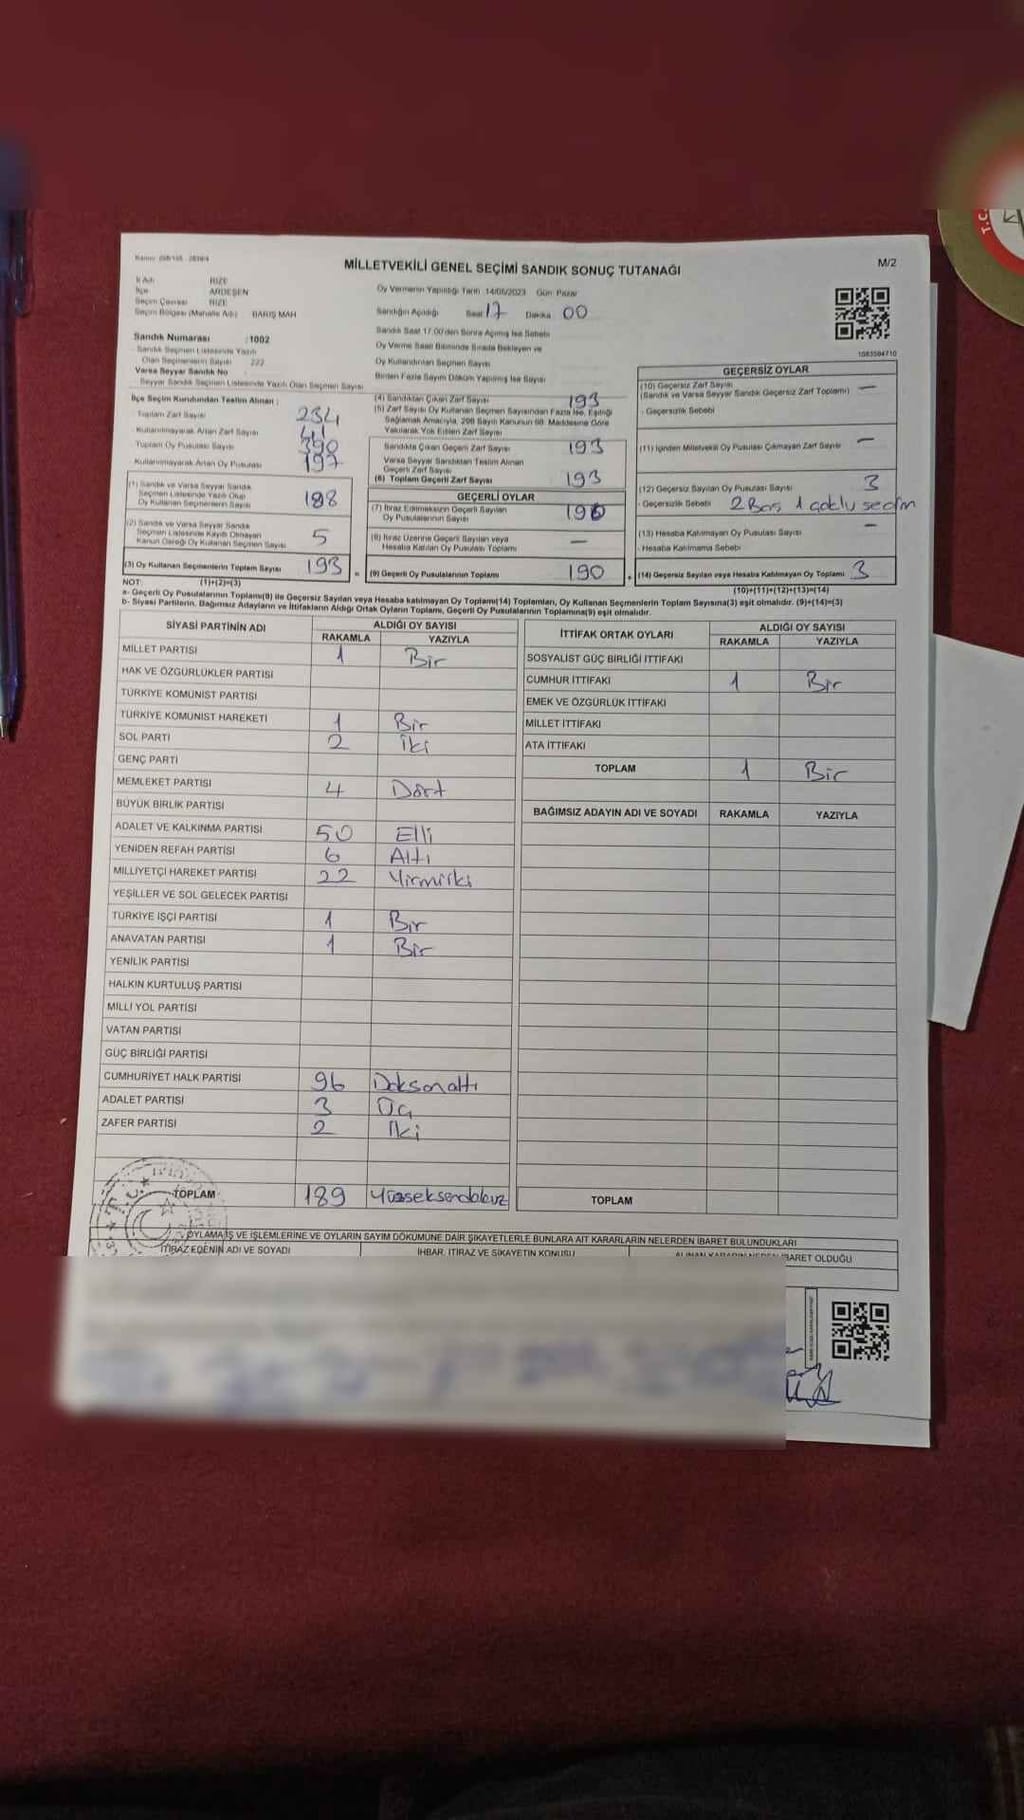 MİLLETVEKİLİ GENEL SEÇİMİ SANDIK SONUÇ TUTANAĞI
M/2
İl Adı RİZE
İlçe ARDEŞEN
Seçim Çevresi RİZE
Seçim Bölgesi (Mahalle Adı) BARIŞ MAH
Oy Vermenin Yapıldığı Tarih 14/05/2023 Gün: Pazar
Sandığın Açıldığı Saat 17 Dakika 00
Sandık Saat 17.00'den Sonra Açılmış İse Sebebi
Oy Verme Saati Bitiminde Sırada Bekleyen ve
Oy Kullandırılan Seçmen Sayısı
Birden Fazla Sayım Döküm Yapılmış İse Sayısı
Sandık Numarası :1002
Sandık Seçmen Listesinde Yazılı
Olan Seçmenlerin Sayısı 222
Varsa Seyyar Sandık No
Seyyar Sandık Seçmen Listesinde Yazılı Olan Seçmen Sayısı
İlçe Seçim Kurulundan Teslim Alınan:
Toplam Zarf Sayısı 234
Kullanılmayarak Artan Zarf Sayısı 41
Toplam Oy Pusulası Sayısı 390
Kullanılmayarak Artan Oy Pusulası 197
(1) Sandık ve Varsa Seyyar Sandık
Seçmen Listesinde Yazılı Olup
Oy Kullanan Seçmenlerin Sayısı 188
(2) Sandık ve Varsa Seyyar Sandık
Seçmen Listesinde Kaydı Olmayan
Kanun Gereği Oy Kullanan Seçmen Sayısı 5
(3) Oy Kullanan Seçmenlerin Toplam Sayısı 193
(4) Sandıktan Çıkan Zarf Sayısı 193
(5) Zarf Sayısı Oy Kullanan Seçmen Sayısından Fazla İse, Eşitliği
Sağlamak Amacıyla, 298 Sayılı Kanunun 98. Maddesine Göre
Yakılarak Yok Edilen Zarf Sayısı
Sandıkta Çıkan Geçerli Zarf Sayısı 193
Varsa Seyyar Sandıktan Teslim Alınan
Geçerli Zarf Sayısı
(6) Toplam Geçerli Zarf Sayısı 193
GEÇERLİ OYLAR
(7) İtiraz Edilmeksizin Geçerli Sayılan
Oy Pusulalarının Sayısı 190
(8) İtiraz Üzerine Geçerli Sayılan veya
Hesaba Katılan Oy Pusulası Toplamı —
= (9) Geçerli Oy Pusulalarının Toplamı 190
1083504710
GEÇERSİZ OYLAR
(10) Geçersiz Zarf Sayısı —
(Sandık ve Varsa Seyyar Sandık Geçersiz Zarf Toplamı)
- Geçersizlik Sebebi
(11) İçinden Milletvekili Oy Pusulası Çıkmayan Zarf Sayısı —
(12) Geçersiz Sayılan Oy Pusulası Sayısı 3
- Geçersizlik Sebebi 2 Boş 1 çoklu seçim
(13) Hesaba Katılmayan Oy Pusulası Sayısı —
- Hesaba Katılmama Sebebi
+ (14) Geçersiz Sayılan veya Hesaba Katılmayan Oy Toplamı 3
NOT: (1)+(2)=(3)
(10)+(11)+(12)+(13)=(14)
a- Geçerli Oy Pusulalarının Toplamı(9) ile Geçersiz Sayılan veya Hesaba katılmayan Oy Toplamı(14) Toplamları, Oy Kullanan Seçmenlerin Toplam Sayısına(3) eşit olmalıdır. (9)+(14)=(3)
b- Siyasi Partilerin, Bağımsız Adayların ve İttifakların Aldığı Ortak Oyların Toplamı, Geçerli Oy Pusulalarının Toplamına(9) eşit olmalıdır.
SİYASİ PARTİNİN ADI ALDIĞI OY SAYISI
RAKAMLA YAZIYLA
MİLLET PARTİSİ 1 Bir
HAK VE ÖZGÜRLÜKLER PARTİSİ
TÜRKİYE KOMÜNİST PARTİSİ
TÜRKİYE KOMÜNİST HAREKETİ 1 Bir
SOL PARTİ 2 İki
GENÇ PARTİ
MEMLEKET PARTİSİ 4 Dört
BÜYÜK BİRLİK PARTİSİ
ADALET VE KALKINMA PARTİSİ 50 Elli
YENİDEN REFAH PARTİSİ 6 Altı
MİLLİYETÇİ HAREKET PARTİSİ 22 Yirmiiki
YEŞİLLER VE SOL GELECEK PARTİSİ
TÜRKİYE İŞÇİ PARTİSİ 1 Bir
ANAVATAN PARTİSİ 1 Bir
YENİLİK PARTİSİ
HALKIN KURTULUŞ PARTİSİ
MİLLİ YOL PARTİSİ
VATAN PARTİSİ
GÜÇ BİRLİĞİ PARTİSİ
CUMHURİYET HALK PARTİSİ 96 Doksanaltı
ADALET PARTİSİ 3 Üç
ZAFER PARTİSİ 2 İki
TOPLAM 189 Yüzseksendokuz
İTTİFAK ORTAK OYLARI ALDIĞI OY SAYISI
RAKAMLA YAZIYLA
SOSYALİST GÜÇ BİRLİĞİ İTTİFAKI
CUMHUR İTTİFAKI 1 Bir
EMEK VE ÖZGÜRLÜK İTTİFAKI
MİLLET İTTİFAKI
ATA İTTİFAKI
TOPLAM 1 Bir
BAĞIMSIZ ADAYIN ADI VE SOYADI RAKAMLA YAZIYLA
TOPLAM
OYLAMA İŞ VE İŞLEMLERİNE VE OYLARIN SAYIM DÖKÜMÜNE DAİR ŞİKAYETLERLE BUNLARA AİT KARARLARIN NELERDEN İBARET BULUNDUKLARI
İTİRAZ EDENİN ADI VE SOYADI İHBAR, İTİRAZ VE ŞİKAYETİN KONUSU ALINAN KARARIN NEDEN İBARET OLDUĞU
T.C.